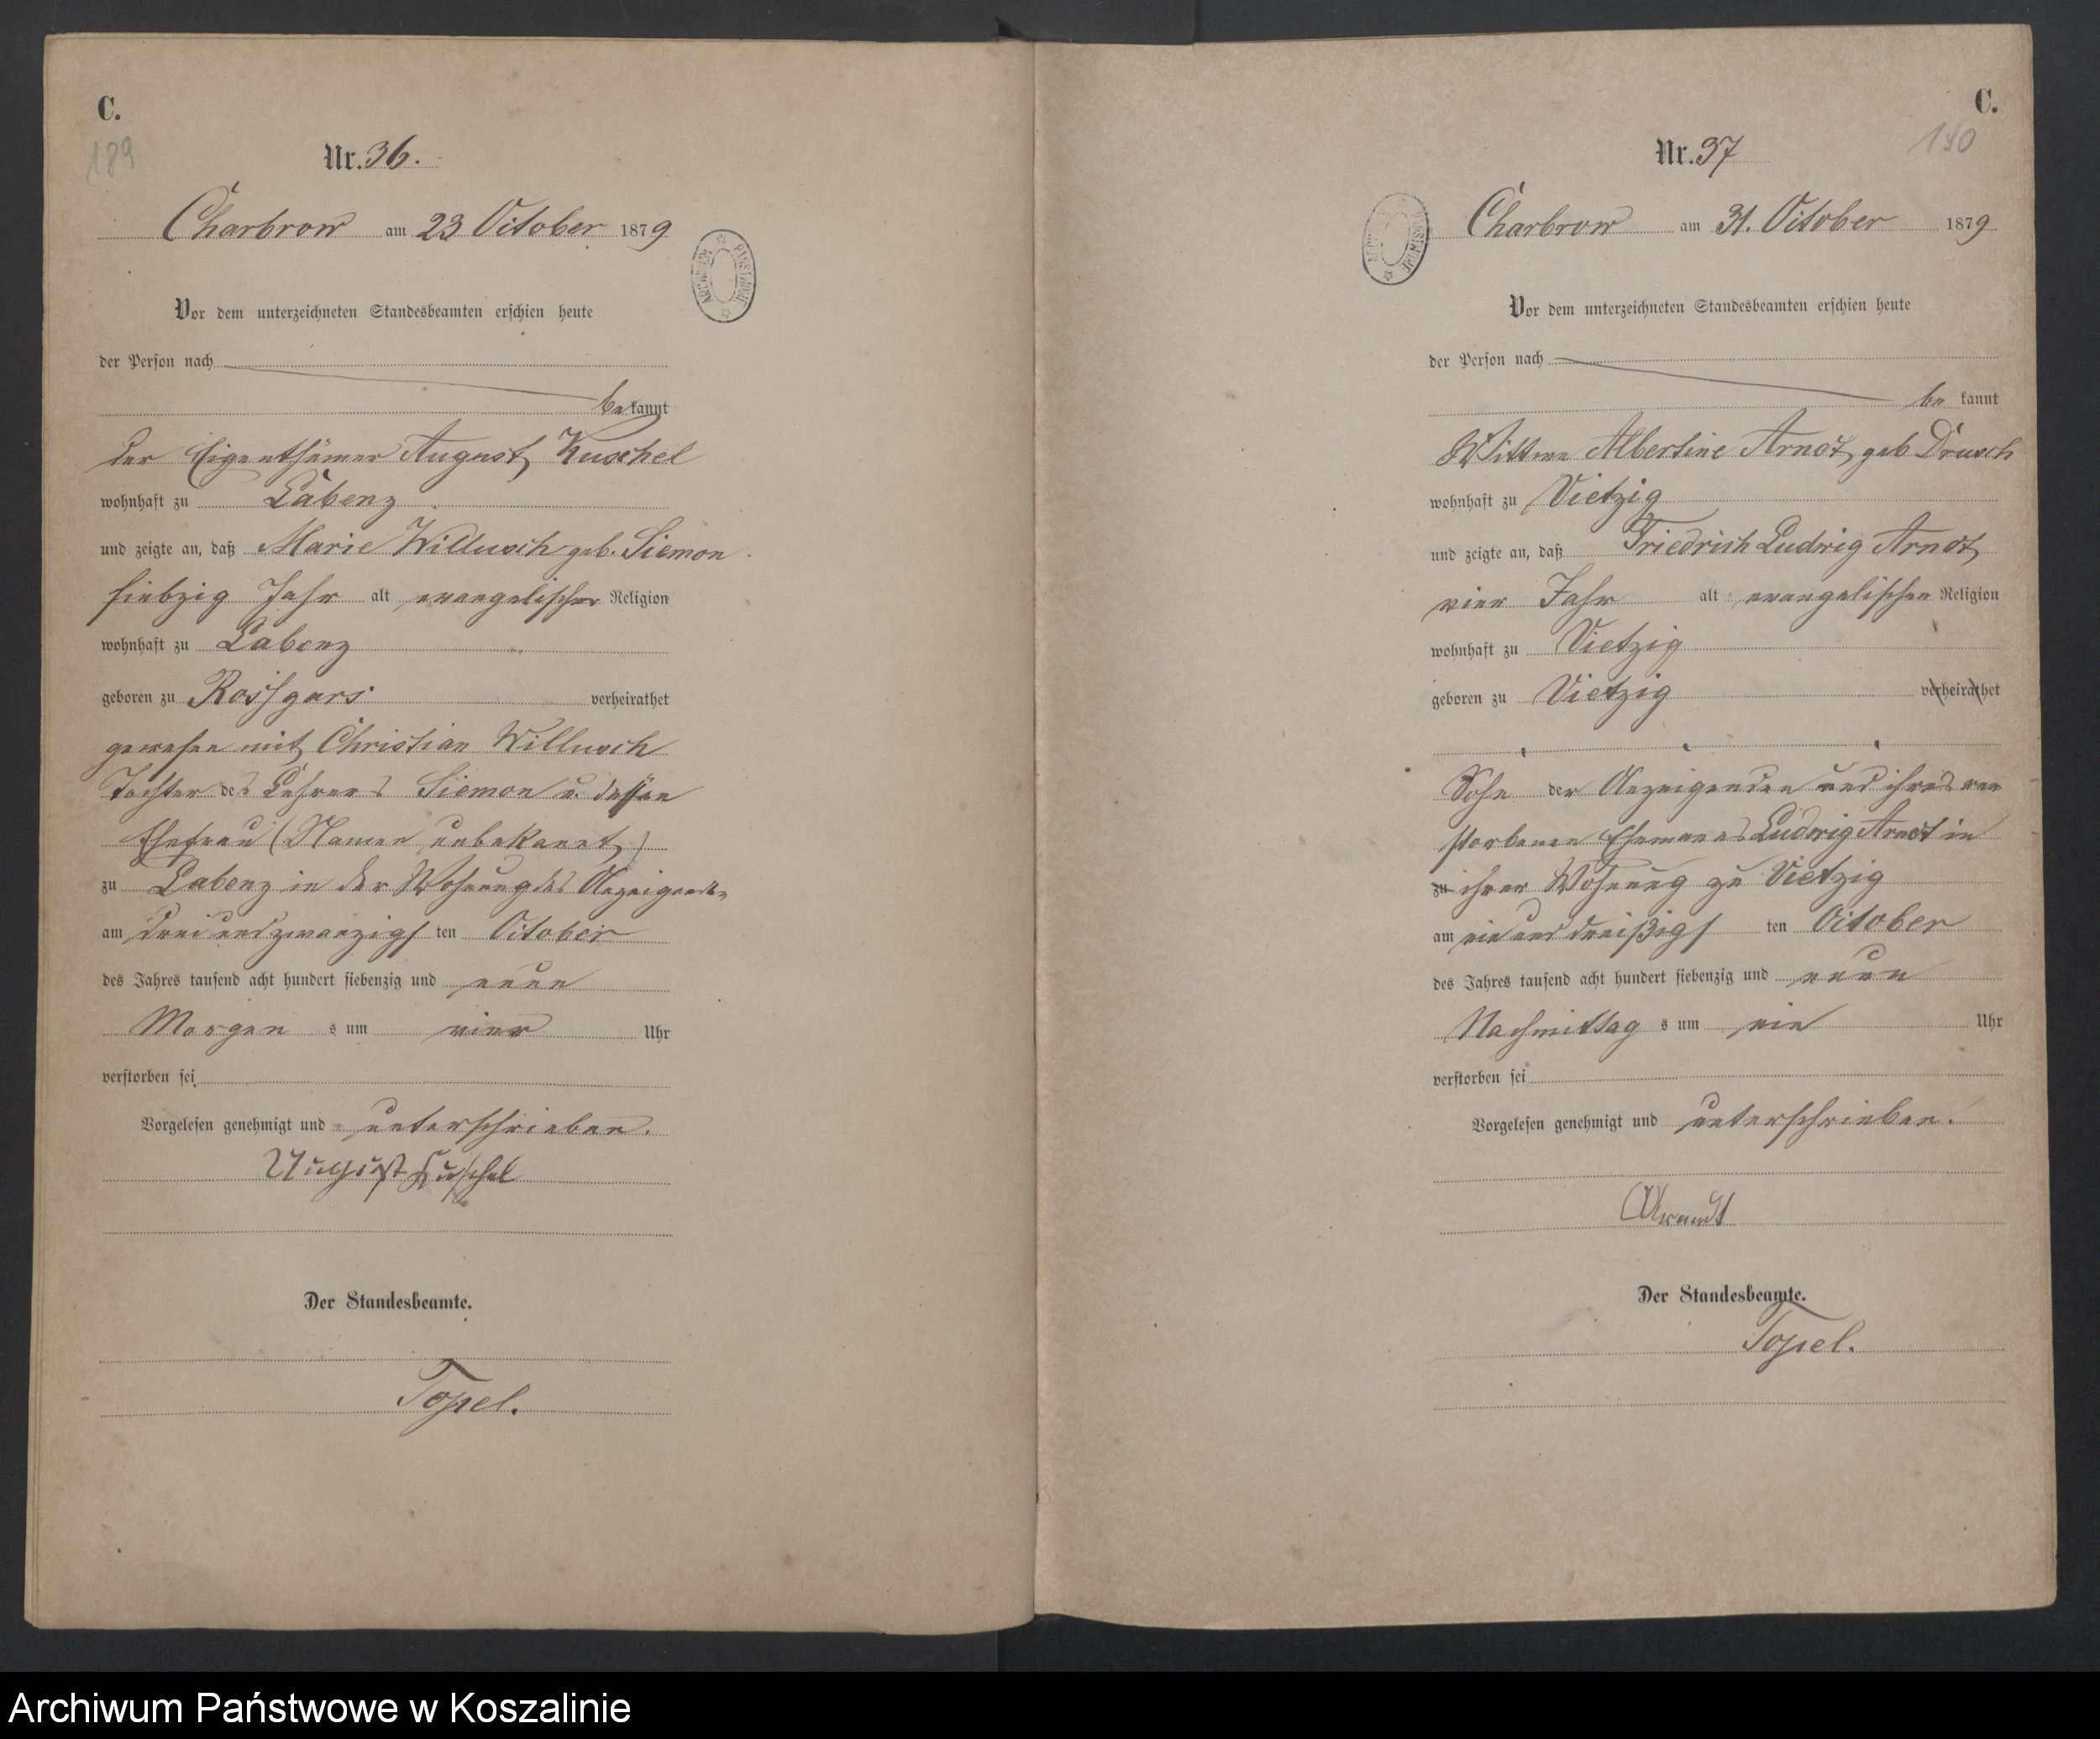 C.
189
Nr. 36.
Charbrow am 23 October 1879
ARCHIWUM PAŃSTWOWE
Vor dem unterzeichneten Standesbeamten erschien heute
der Person nach
bekannt
der Eigenthümer August Kuschel
wohnhaft zu Labenz
und zeigte an, daß Marie Willusch geb. Siemon
siebzig Jahr alt evangelischer Religion
wohnhaft zu Labenz
geboren zu Rossgars verheirathet
gewesen mit Christian Willusch
Tochter des Lehrers Siemon u. dessen
Ehefrau (Namen unbekannt)
zu Labenz in der Wohnung des Anzeigenden
am drei und zwanzigsten October
des Jahres tausend acht hundert siebenzig und neun
Morgens um vier Uhr
verstorben sei
Vorgelesen genehmigt und unterschrieben.
August Kuschel
Der Standesbeamte.
Topel.
C.
190
Nr. 37
Charbrow am 31. October 1879
Vor dem unterzeichneten Standesbeamten erschien heute
der Person nach
bekannt
Wittwe Albertine Arndt, geb Drusch
wohnhaft zu Vietzig
und zeigte an, daß Friedrich Ludwig Arndt,
vier Jahr alt evangelischer Religion
wohnhaft zu Vietzig
geboren zu Vietzig verheirathet
Sohn der Anzeigenden und ihres ver
storbenen Ehemanes Ludwig Arndt in
zu ihrer Wohnung zu Vietzig
am ein und dreißigsten October
des Jahres tausend acht hundert siebenzig und neun
Nachmittags um ein Uhr
verstorben sei
Vorgelesen genehmigt und unterschrieben.
Der Standesbeamte.
Topel.
Archiwum Państwowe w Koszalinie